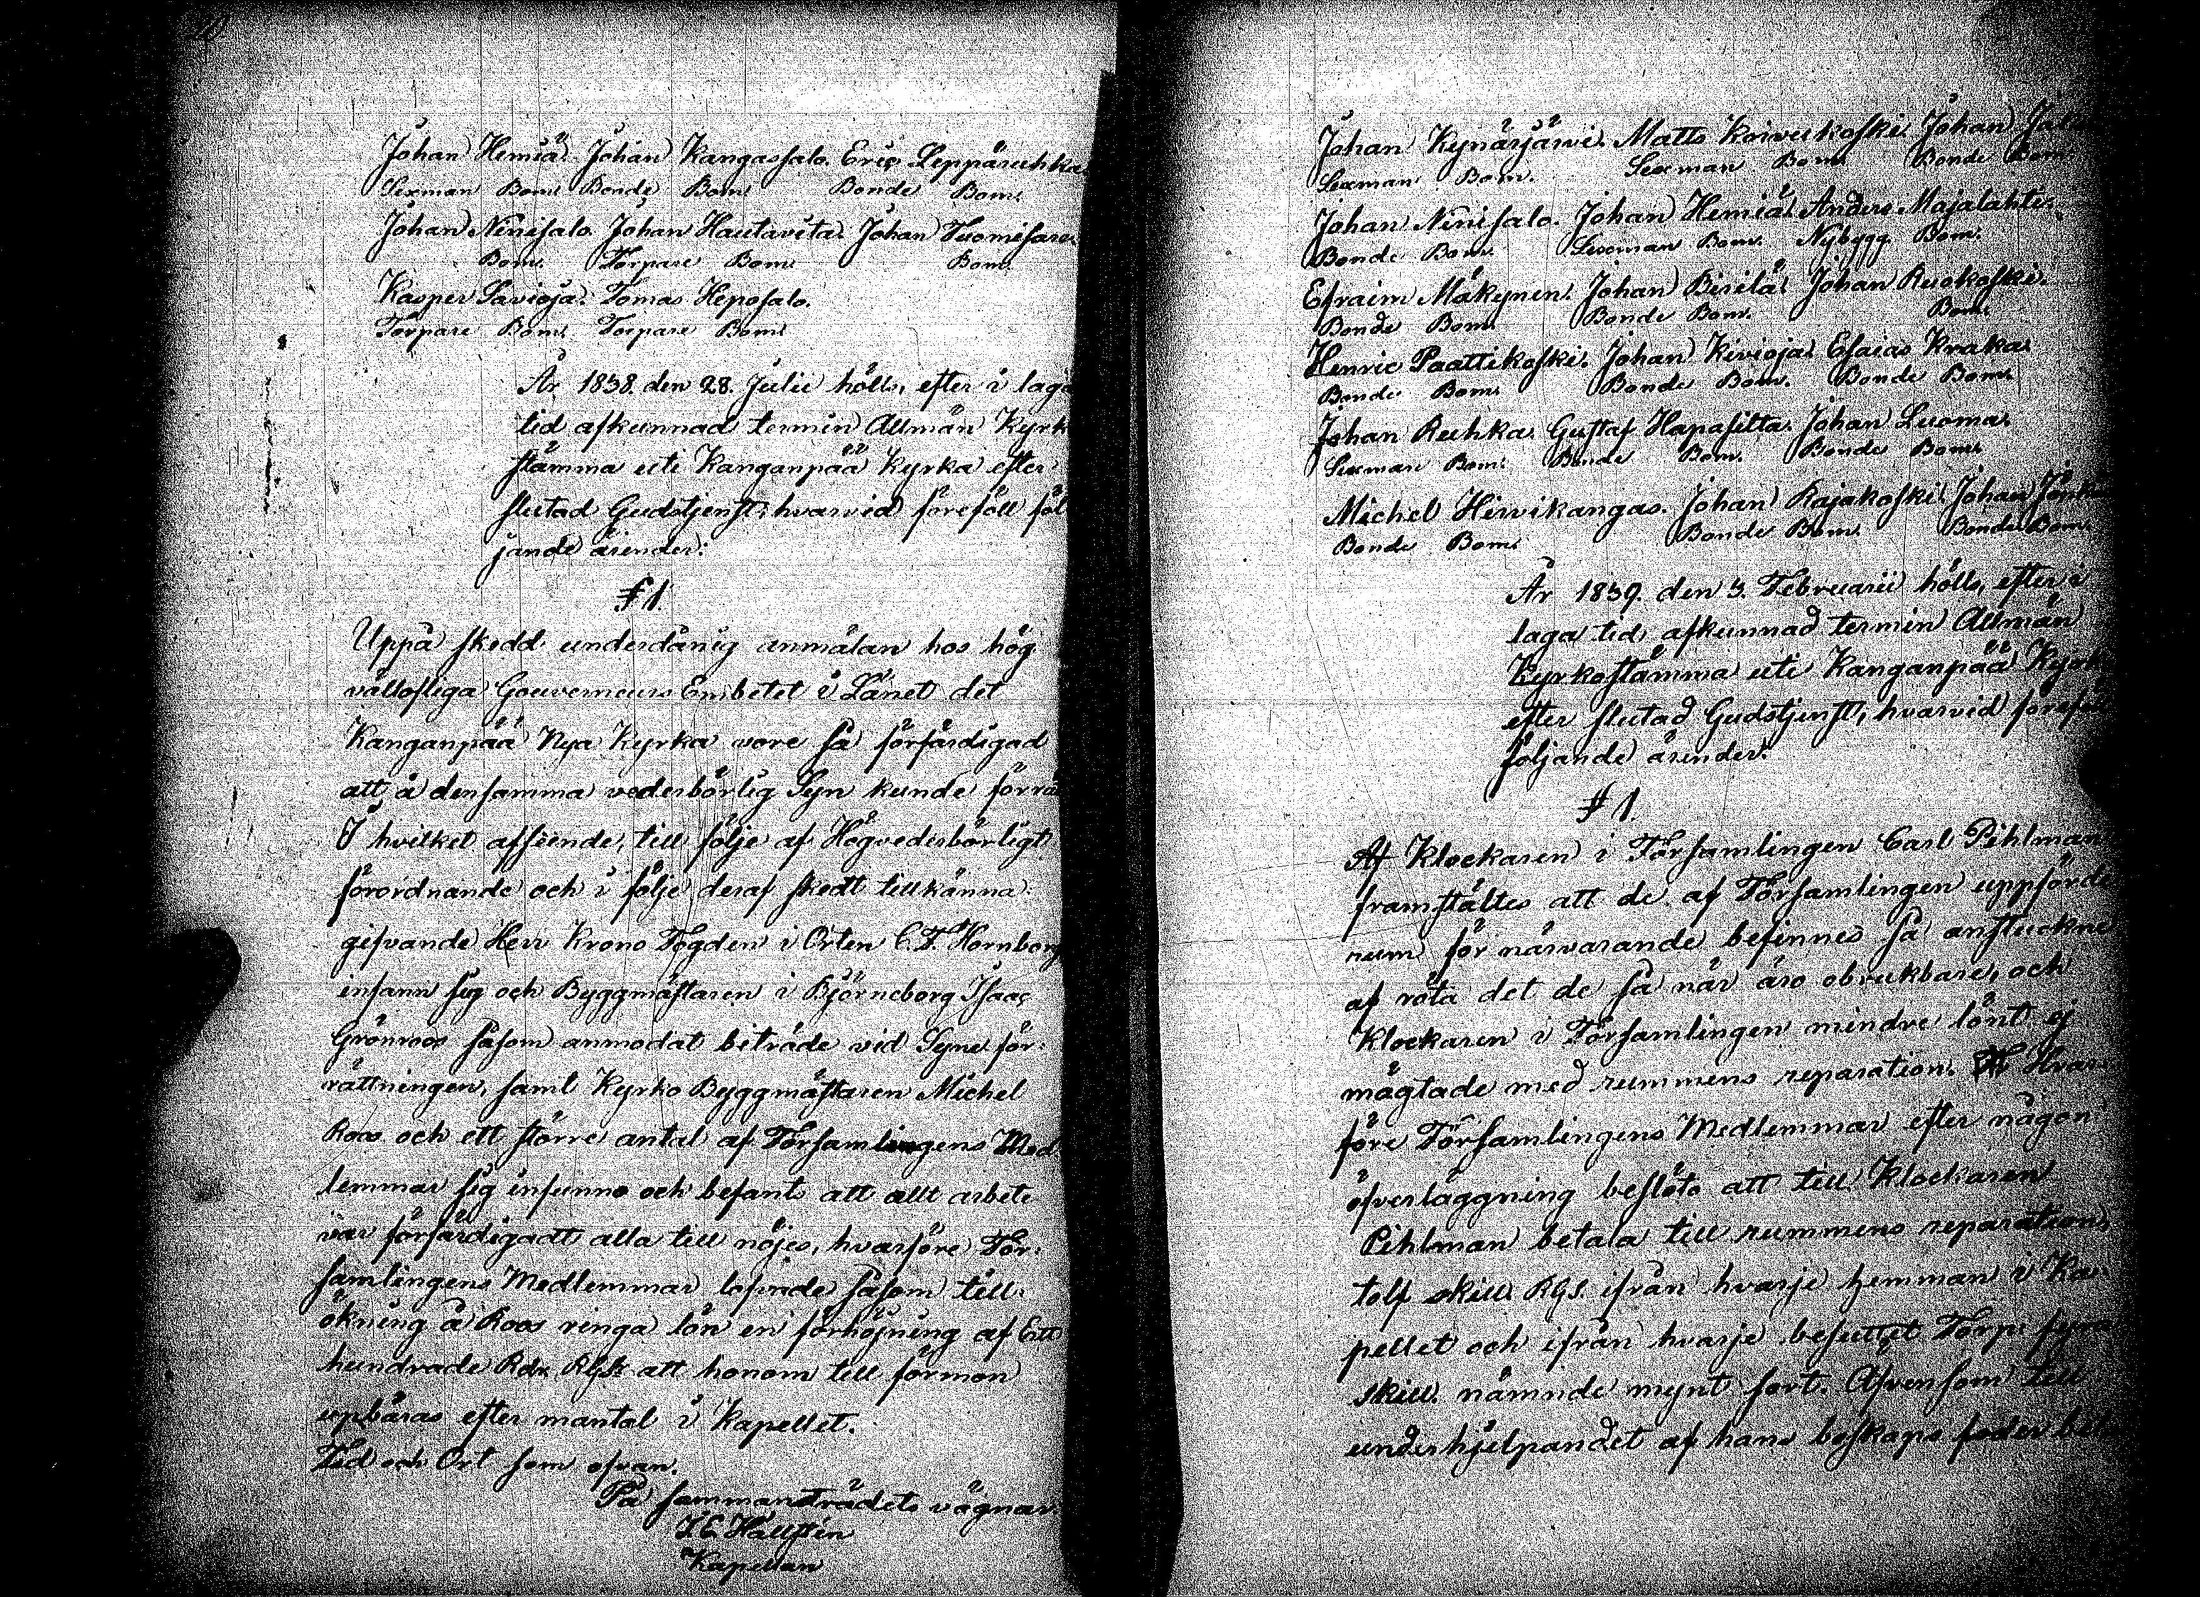 Johan Hemiä. Johan Kangassalo. Eric Leppäruhka
Sexman Bom. Bonde Bom. Bonde Bom.
Johan Ninisalo. Johan Hautavita. Johan Tuomisaro.
Bom. Torpare Bom. Bom.
Kasper Savioja. Tomas Heposalo.
Torpare Bom. Torpare Bom.
År 1838. den 28. Julii hölls, efter i laga
tid afkunnad termin Allmän Kyrko
stämma uti Kanganpää Kyrka efter
slutad Gudstjenst, hvarvid föreföll föl
jande ärender:
§ 1.
Uppå skedd underdånig anmälan hos hög
vällofliga Gouverneurs Embetet i Länet det
Kanganpää Nya Kyrka vore så förfärdigad
att å densamma vederbörlig Syn kunde förrät
I hvilket afseende, till följe af Högvederbörligt
förordnande och i följe deraf skedt tillkänna-
gifvande Herr Krono Fogden i Orten C. F. Hornborg
infann sig och Byggmästaren i Björneborg Isaac
Grönroos såsom anmodat biträde vid Syne för-
rättningen, samt Kyrko Byggmästaren Michel
Roos och ett större antal af Församlingens Med
lemmar sig infunno och befants att allt arbete
var förfärdigadt alla till nöjes, hvarföre För-
samlingens Medlemmar lofvade såsom till-
ökning å Roos ringa lön en förhöjning af Ett
hundrade Rdr RGs att honom till förmon
upbäras efter mantal i Kapellet.
Tid och Ort som ofvan.
På sammanträdets vägnar
I. E. Hällsten
Kapellan
Johan Kynäsjärvi. Matts Koivukoski. Johan
Sexman Bom. Sexman Bom. Bonde Bom.
Johan Ninisalo. Johan Hemiä. Anders Majalahti.
Bonde Bom. Sexman Bom. Nybygg. Bom.
Efraim Mäkynen. Johan Birilä. Johan Ruokoski.
Bonde Bom. Bonde Bom. Bom.
Henric Paattikoski. Johan Kivioja. Esaias Kraka.
Bonde Bom. Bonde Bom. Bonde Bom.
Johan Ruhka. Gustaf Hapasilta. Johan Luoma.
Sexman Bom. Bonde Bom. Bonde Bom.
Michel Hirvikangas. Johan Rajakoski. Johan
Bonde Bom. Bonde Bom. Bonde Bom.
År 1839. den 3. Februarii hölls, efter i
laga tid afkunnad termin Allmän
Kyrkostämma uti Kanganpää Kyrka
efter slutad Gudstjenst, hvarvid föreföll
följande ärender:
§ 1.
Af Klockaren i Församlingen Carl Pihlman
framstältes att de af Församlingen uppförde
rum för närvarande befinnes så anstuckne
af röta det de så när äro obrukbare, och
Klockaren i Församlingen mindre lönt ej
mägtade med rummens reparation. Hvar
före Församlingens Medlemmar efter någon
öfverläggning beslöto att till Klockaren
Pihlman betala till rummens reparation
tolf skill. RGs. ifrån hvarje hemman i Ka-
pellet och ifrån hvarje besuttet Torp fyra
skill. nämnde mynt sort. Äfvensom till
underhjelpandet af hans boskaps foder